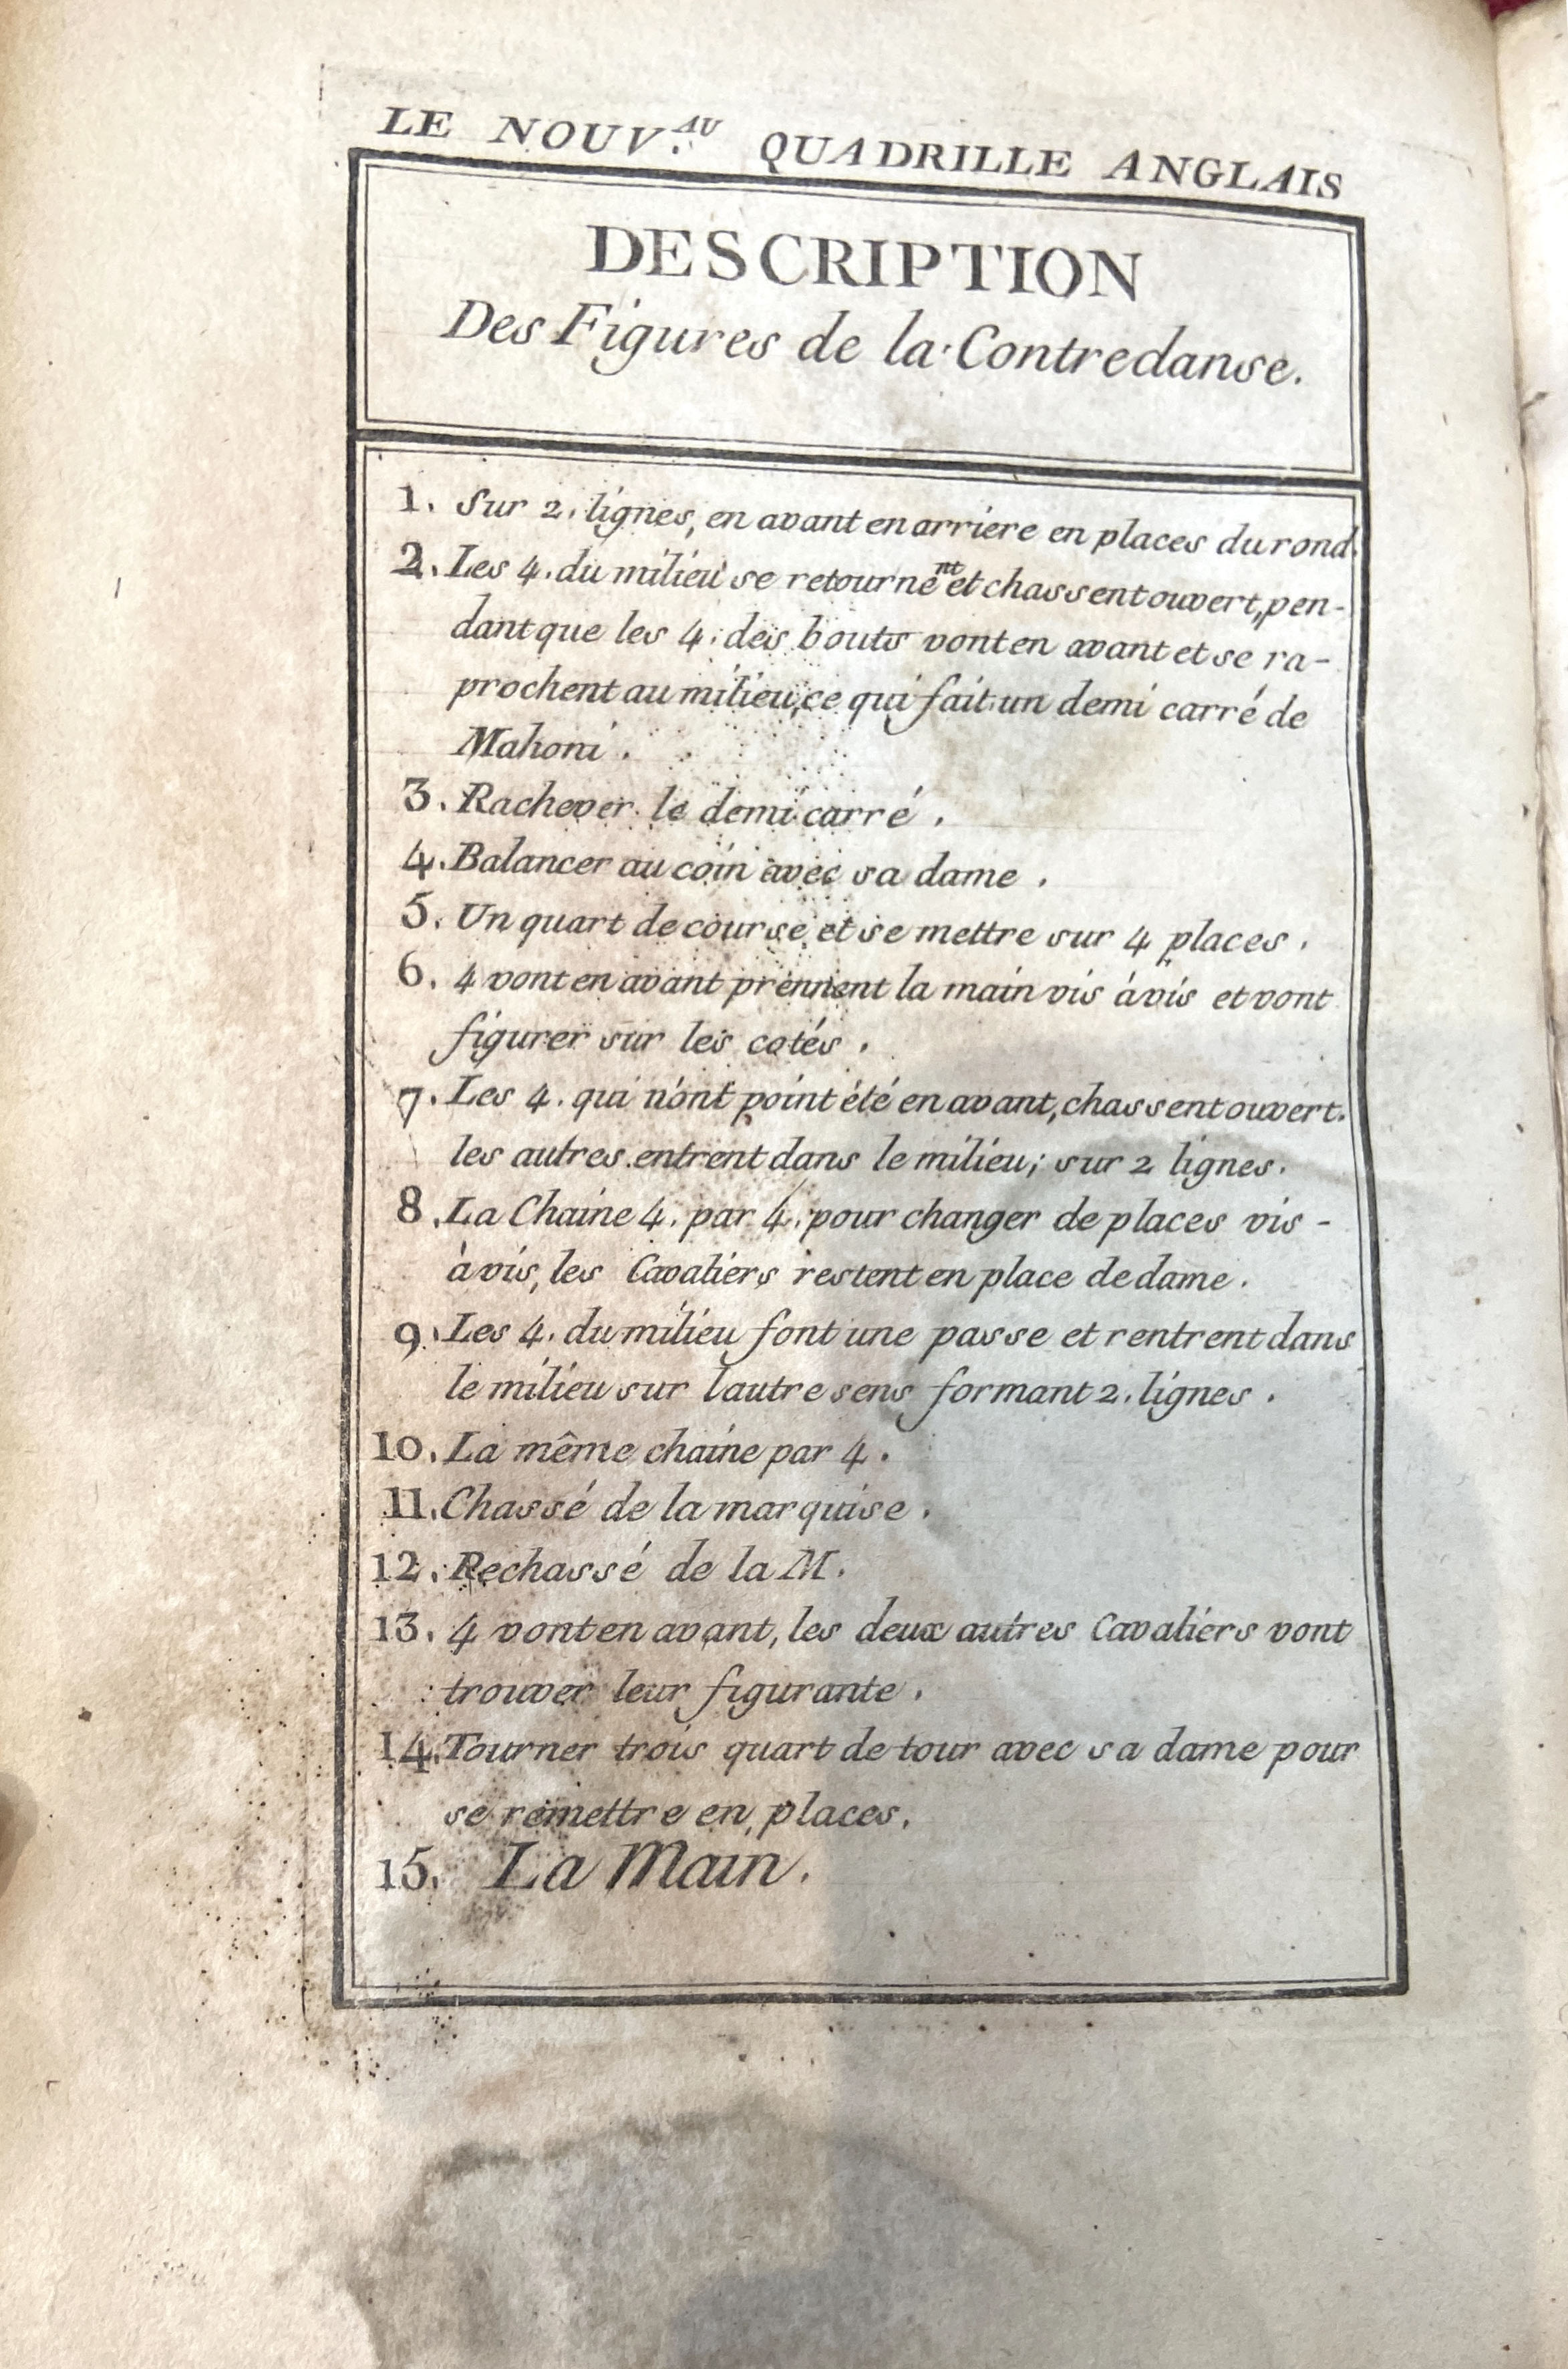 LE NOUV.AU QUADRILLE ANGLAIS
DESCRIPTION
Des Figures de la Contredanse.
1. Sur 2. lignes, en avant en arriere en places du rond.
2. Les 4. du milieu se retournent et chassent ouvert, pen-
dant que les 4. des bouts vont en avant et se ra-
prochent au milieu, ce qui fait un demi carré de
Mahoni.
3. Rachever le demi carré.
4. Balancer au coin avec sa dame.
5. Un quart de course et se mettre sur 4 places.
6. 4 vont en avant prennent la main vis à vis et vont
figurer sur les cotés.
7. Les 4. qui n'ont point été en avant, chassent ouvert.
les autres entrent dans le milieu; sur 2 lignes.
8. La Chaine 4. par 4. pour changer de places vis-
à vis, les Cavaliers restent en place de dame.
9. Les 4. du milieu font une passe et rentrent dans
le milieu sur lautre sens formant 2. lignes.
10. La même chaine par 4.
11. Chassé de la marquise.
12. Rechassé de la M.
13. 4 vont en avant, les deux autres Cavaliers vont
trouver leur figurante.
14. Tourner trois quart de tour avec sa dame pour
se remettre en places.
15. La Main.